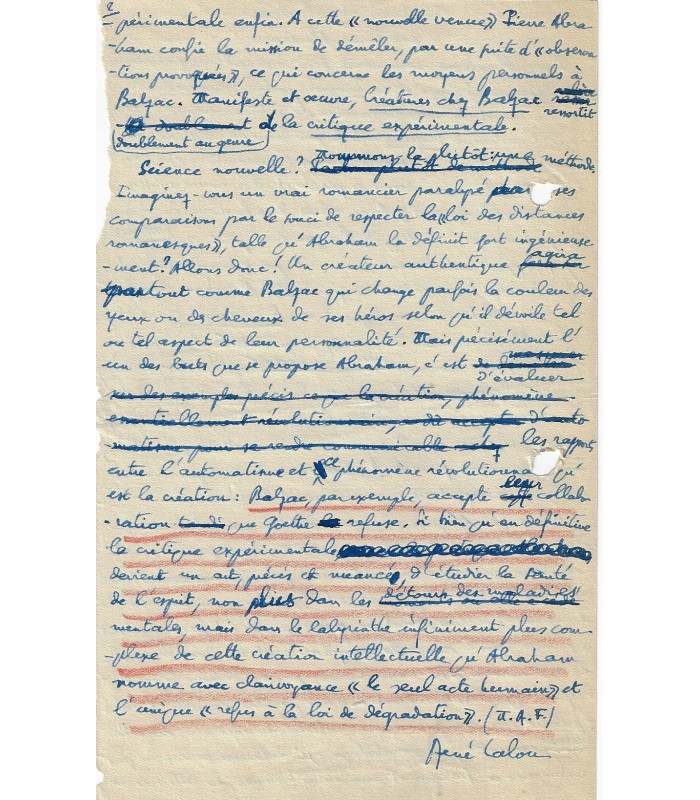 2
-périmentale enfin. A cette « nouvelle venue » Pierre Abra
-ham confie la mission de démêler, par une suite d'« observa
-tions provoquées », ce qui concerne les moyens personnels à
Balzac. Manifeste et œuvre, Créatures chez Balzac
ressortit
doublement au genre
de la critique expérimentale.
Science nouvelle? Nommons la plutôt: une méthode.
Imaginez-vous un vrai romancier paralysé dans ses
comparaisons par le souci de respecter la « loi des distances
romanesques », telle qu'Abraham la définit fort ingénieuse
-ment? Allons donc! Un créateur authentique agira
tout comme Balzac qui change parfois la couleur des
yeux ou des cheveux de ses héros selon qu'il dévoile tel
ou tel aspect de leur personnalité. Mais précisément l'
un des buts que se propose Abraham, c'est
d'évaluer
sur des exemples précis ce que la création, phénomène
essentiellement révolutionnaire, a dû accepter d'auto
-matisme pour se rendre communicable
les rapports
entre l'automatisme et ce phénomène révolutionnaire qu'
est la création: Balzac, par exemple, accepte leur collabo
-ration que Goethe refuse. Si bien qu'en définitive
la critique expérimentale
devient un art, précis et nuancé, d'étudier la santé
de l'esprit, non plus dans les détours des maladies
mentales, mais dans le labyrinthe infiniment plus com
-plexe de cette création intellectuelle qu'Abraham
nomme avec clairvoyance « le seul acte humain » et
l'unique « refus à la loi de dégradation ». (N.R.F.)
René Lalou